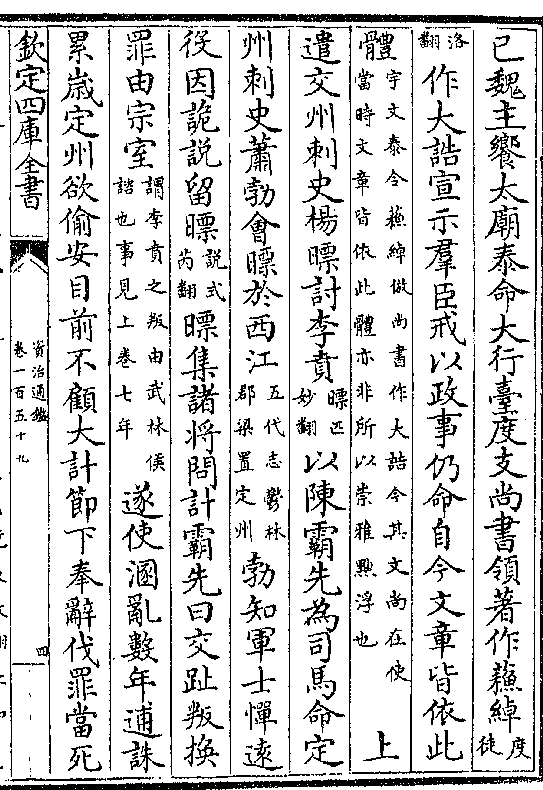 已魏主饗太廟泰命大行臺度支尚書領著作蘇綽度徒
洛翻作大誥宣示羣臣戒以政事仍命自今文章皆依此
體宇文泰令蘇綽倣尚書作大誥今其文尚在使當時文章皆依此體亦非所以崇雅黜浮也上
遣交州刺史楊瞟討李賁瞟匹妙翻以陳霸先為司馬命定
州刺史蕭勃會瞟於西江五代志鬱林郡梁置定州勃知軍士憚遠
役因詭說留瞟說式芮翻瞟集諸將問計霸先曰交趾叛換
罪由宗室謂李賁之叛由武林侯諮也事見上卷七年遂使溷亂數年逋誅
累歲定州欲偷安目前不顧大計節下奉辭伐罪當死
欽定四庫全書
資治通鑑
卷一百五十九
四